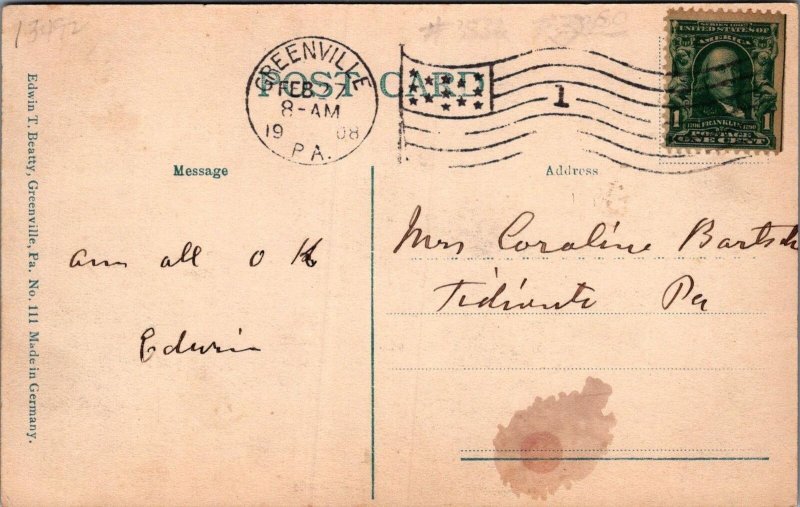 13492
POST CARD
GREENVILLE
FEB 27
8-AM
19 08
PA.
1
SERIES 1902
UNITED STATES OF
AMERICA
1 FRANKLIN 1
POSTAGE
ONE CENT
Message
Address
am all O K
Edwin
Mrs Coroline Bartsch
Tidioute Pa
Edwin T. Beatty, Greenville, Pa. No. 111 Made in Germany.